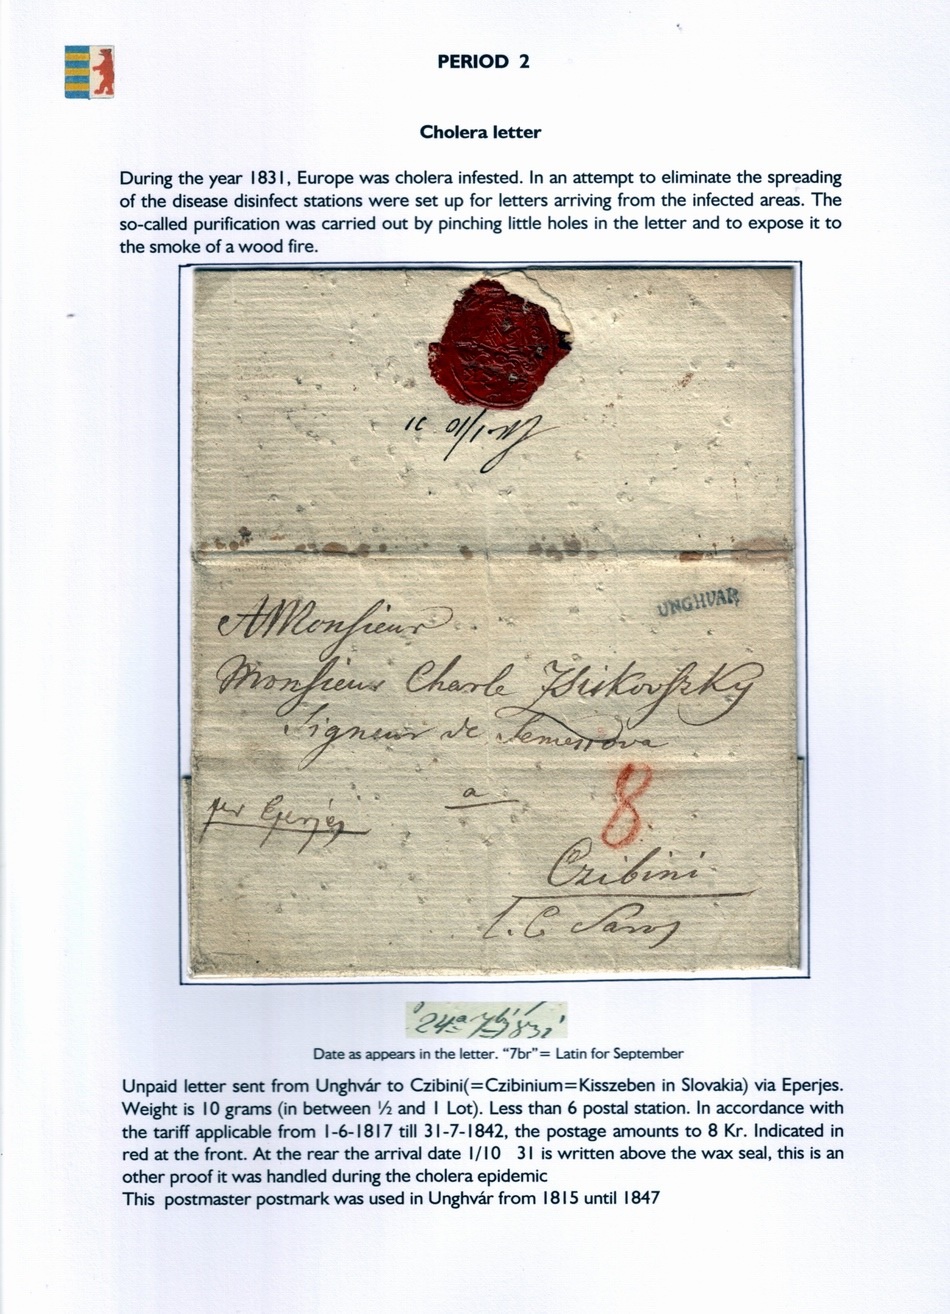 PERIOD 2
Cholera letter
During the year 1831, Europe was cholera infested. In an attempt to eliminate the spreading
of the disease disinfect stations were set up for letters arriving from the infected areas. The
so-called purification was carried out by pinching little holes in the letter and to expose it to
the smoke of a wood fire.
UNGHVAR
A Monsieur
Monsieur Charle
Signeur de
a
8
per Eperjes
Czibini
Saros
Date as appears in the letter. “7br”= Latin for September
Unpaid letter sent from Unghvár to Czibini(=Czibinium=Kisszeben in Slovakia) via Eperjes.
Weight is 10 grams (in between ½ and 1 Lot). Less than 6 postal station. In accordance with
the tariff applicable from 1-6-1817 till 31-7-1842, the postage amounts to 8 Kr. Indicated in
red at the front. At the rear the arrival date 1/10 31 is written above the wax seal, this is an
other proof it was handled during the cholera epidemic
This postmaster postmark was used in Unghvár from 1815 until 1847